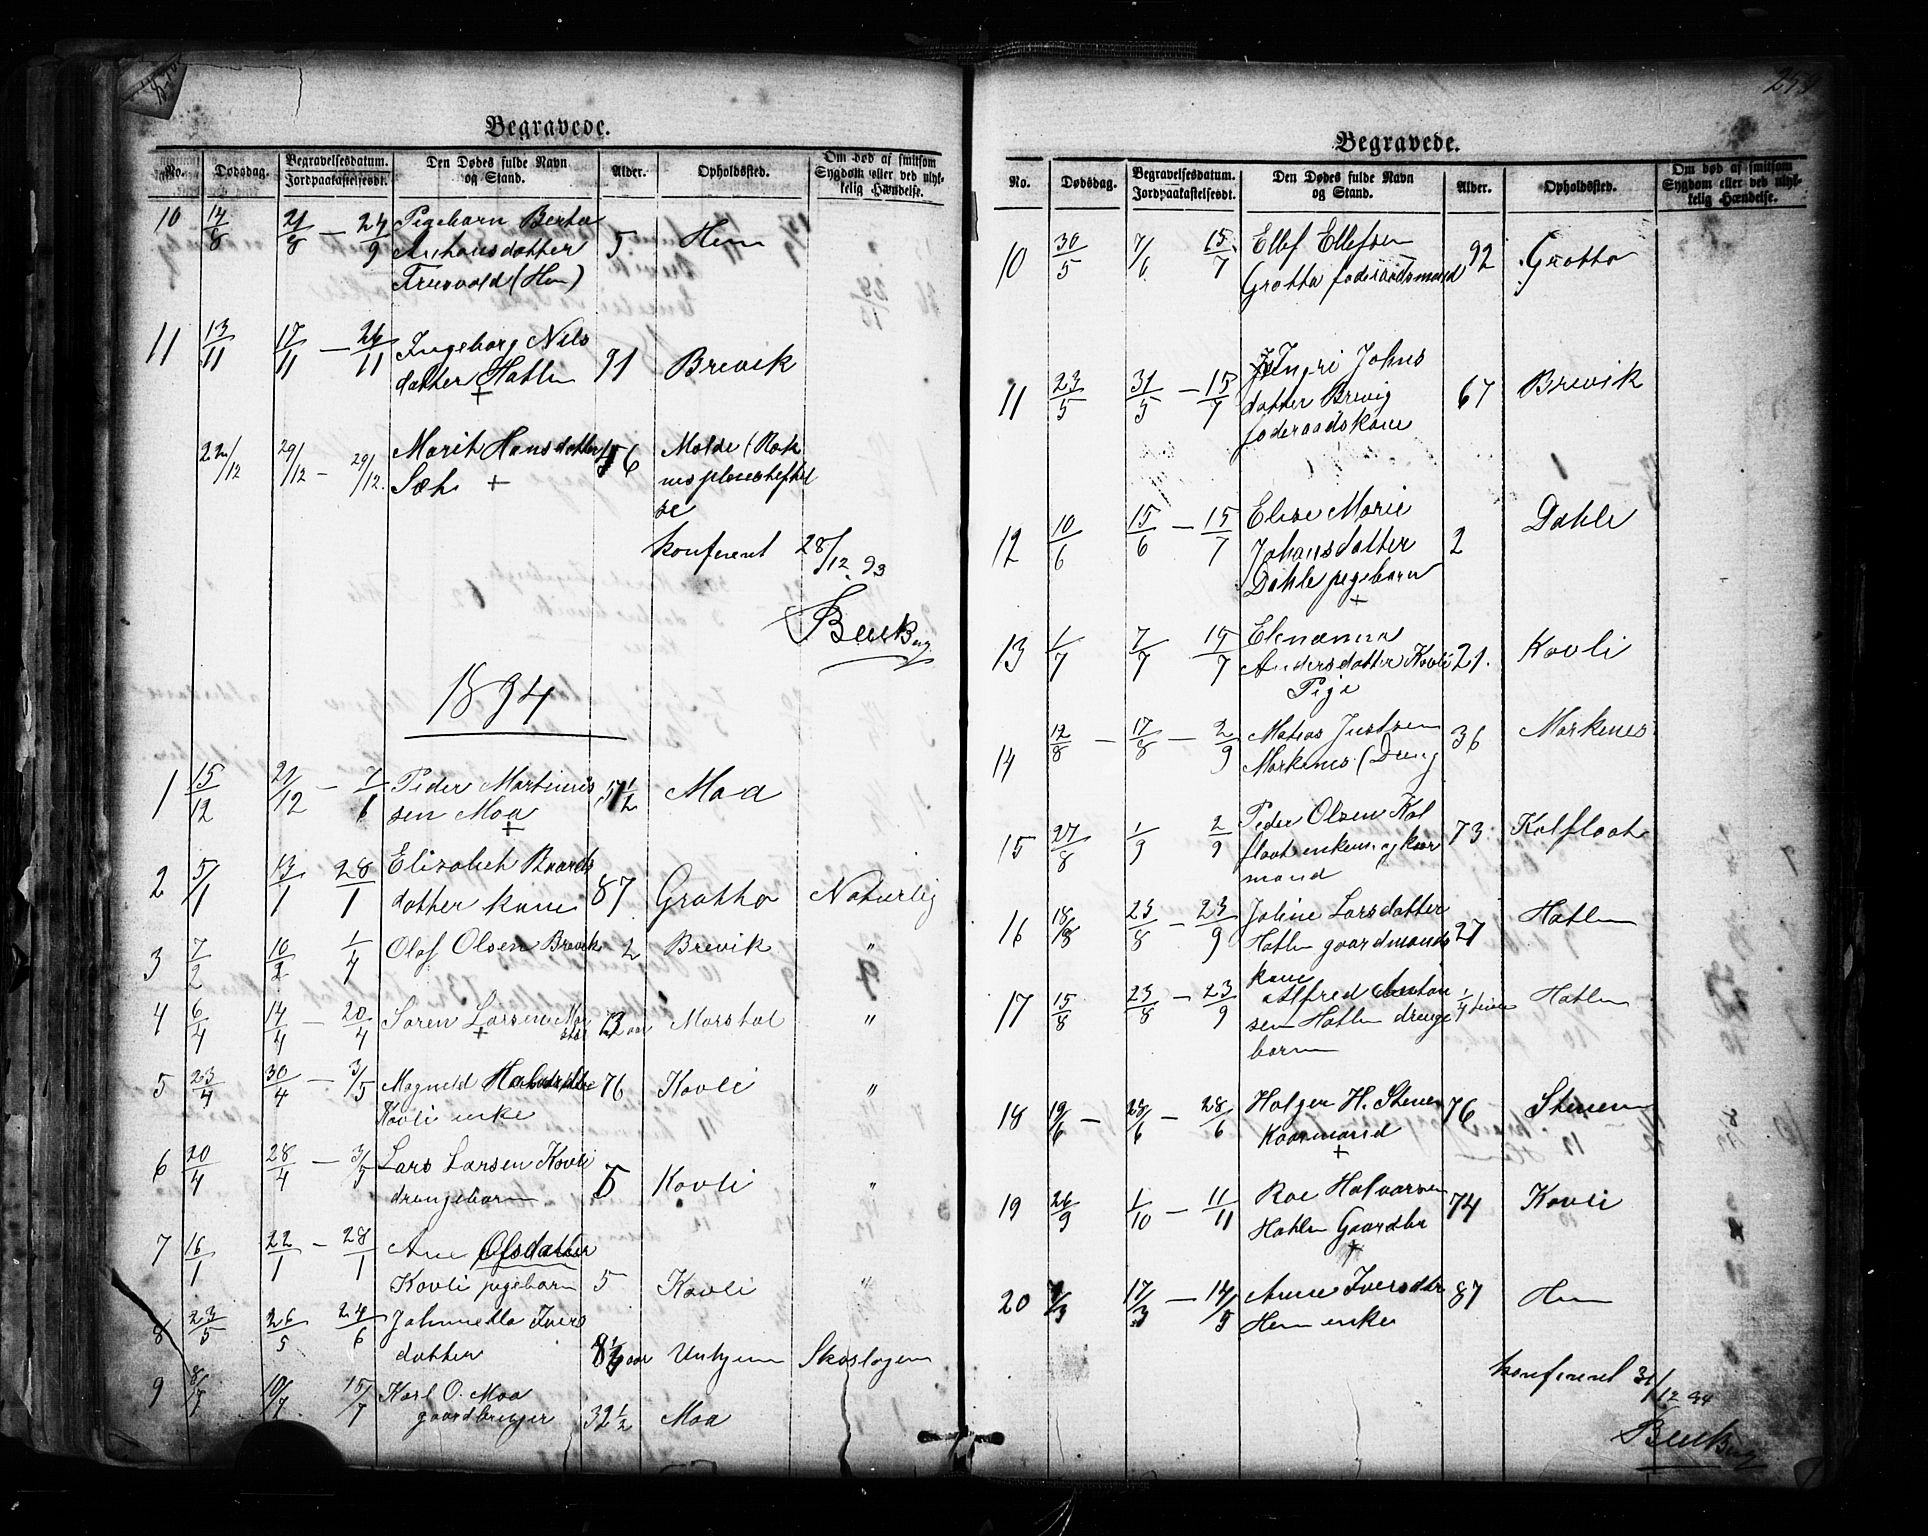 Begravede.
No. Dødsdag. Begravelsesdatum. Jordpaakastelsesdt. Den Dødes fulde Navn og Stand. Alder. Opholdssted. Om død af smitsom Sygdom eller ved ulykkelig Hændelse.
10 14/8 21/8 — 24/9 Pigebarn Berta 5 Hem
datter
(Hem)
11 13/11 17/11 — 26/11 Ingeborg Nils 91 Brevik
datter Hatlen
+
22/12 29/12 — 29/12. Marit Hansdatter 56 Molde (Rok
Sæh +
se
konfereret 28/12. 93
Buck
1894
1 15/12 29/12 — 7/1 Peder Martinus 51 1/2 Moa
sen Moa
+
2 5/1 13/1 28/1 Elizabeth Baards 87 Grotha Naturlig
datter kone
3 7/2 10/2 1/4 Olaf Olsen Brevik 2 Brevik "
4 6/4 14/4 — 20/4 Søren Larsen Mar 13 aar Marstal "
+ stal
5 23/4 30/4 — 3/5 Magnild 76 Kovli "
Kovli enke
6 20/4 28/4 — 3/5 Lars Larsen Kovli 5 Kovli "
drengebarn
7 16/1 22/1 — 28/1 Ane Olsdatter
Kovli pigebarn 5 Kovli "
8 23/5 26/5 24/6 Johnnetta Ivers
datter 8 1/2 aar Unhjem Skoslagen
9 8/7 10/7 15/7 Karl O. Moa
gaardbruger 32 1/2 Moa
259
Begravede.
No. Dødsdag. Begravelsesdatum. Jordpaakastelsesdt. Den Dødes fulde Navn og Stand. Alder. Opholdssted. Om død af smitsom Sygdom eller ved ulykkelig Hændelse.
10 30/5 7/6 15/7 Ellef Ellefsen 92 Grotta
Grotta foderaadsmand
11 23/5 31/5 — 15/7 Ingri Johns 67 Brevik
datter Brevig
foderaadskone
12 10/6 15/6 — 15/7 Elise Marie 2 Dahle
Johansdatter
Dahle pigebarn
+
13 1/7 7/7 15/7 Elenanna 21. Kovli
Andersdatter Kovli
Pige
14 12/8 — 17/8 — 2/9 Matias Justsen 36 Markenes
Markenes (Dreng
15 27/8 1/9 2/9 Peder Olsen Kol 73 Kolflaat
flaat enkem. og kaar
mand
16 18/8 23/8 — 23/9 Joline Larsdatter 27 Hatlen
Hatlen gaardmands
kone
17 15/8 23/8 — 23/9 Alfred Anton 1/4 time Hatlen
sen Hatlen drenge
barn
18 19/6 — 28/6 — 28/6 Holger H. Stenen 76 Stenen
Kaarmand
+
19 26/9 1/10 — 11/11 Roe Halvorsen 74 Kovli
Hatlen Gaardbr
+
20 7/3 17/3 — 14/5 Anne Iversdtr 87 Hem
Hem enke
konfereret 31/12 94
Buck